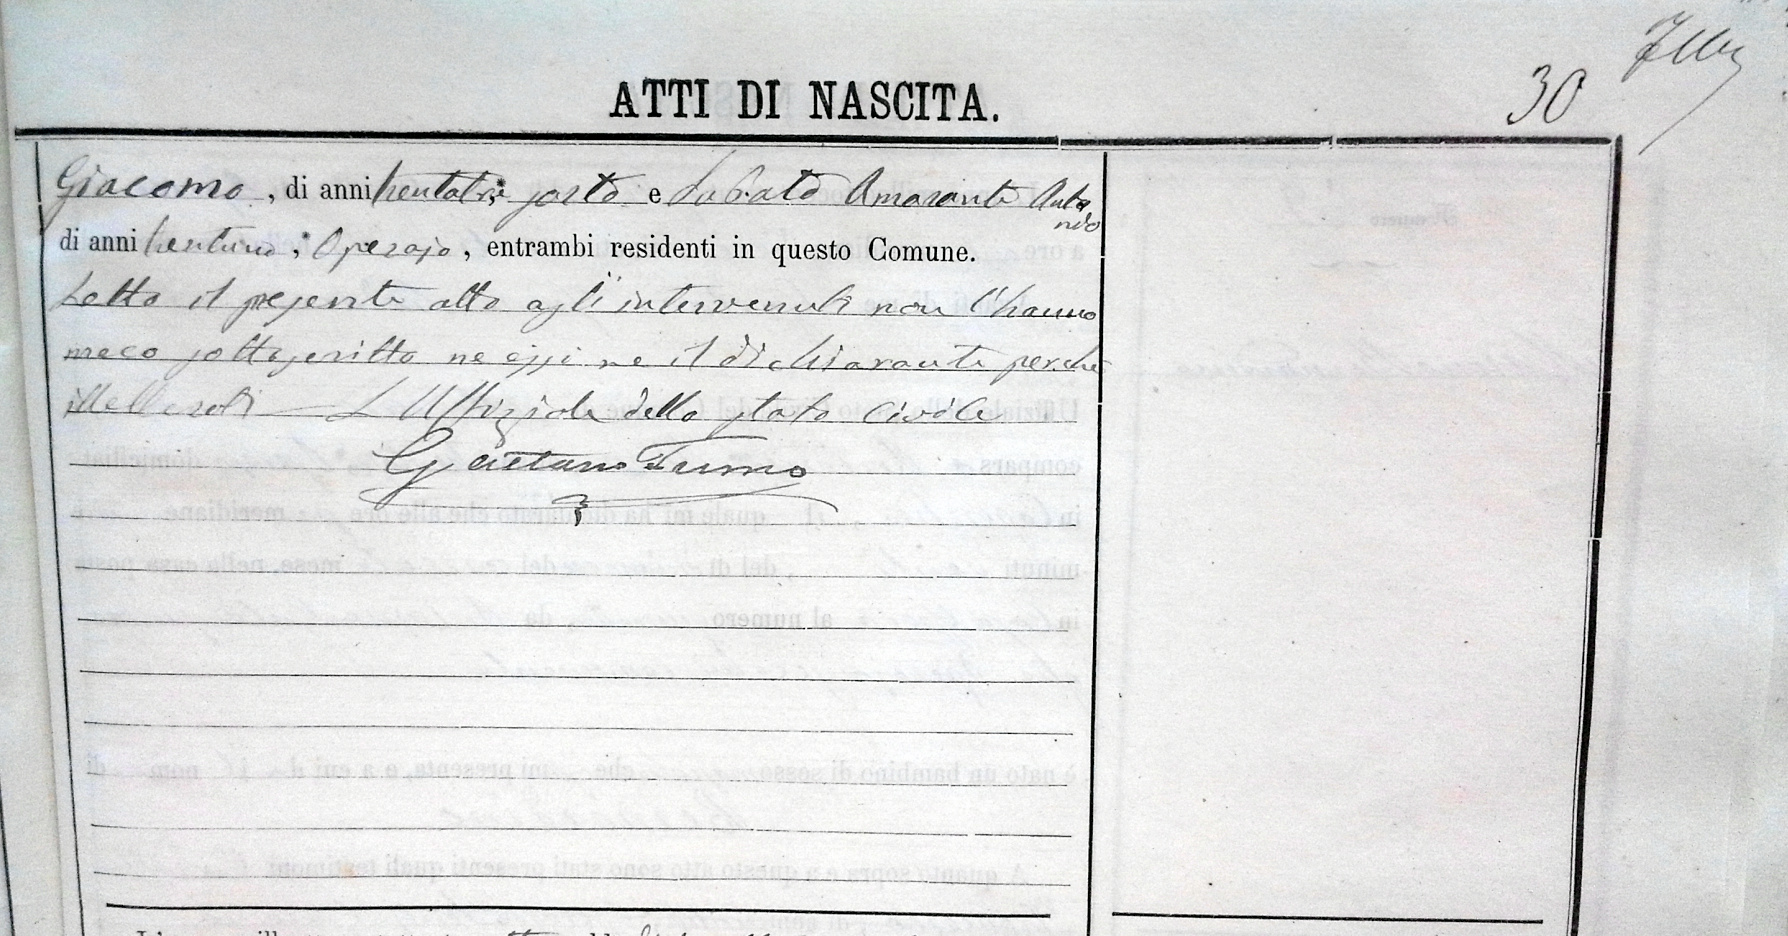 ATTI DI NASCITA.
30
Giacomo, di anni trentatre, sarto e Sabato Amarante Antonio
di anni trentuno, Operajo, entrambi residenti in questo Comune.
Letto il presente atto agli intervenuti non l'hanno
meco sottoscritto ne essi ne il dichiarante perche
illetterati — L'Uffiziale dello stato Civile
Gaetano Fumo